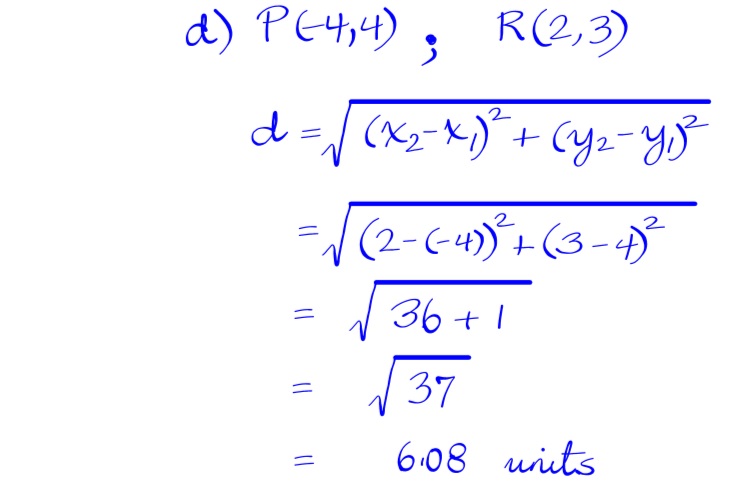 d) P(-4,4) ; R(2,3)
d = √((x₂-x₁)² + (y₂-y₁)²)
= √((2-(-4))² + (3-4)²)
= √(36 + 1)
= √37
= 6.08 units